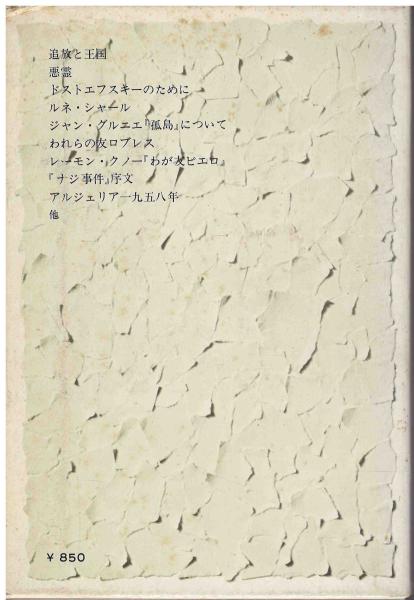 追放と王国
悪霊
ドストエフスキーのために
ルネ・シャール
ジャン・グルニエ『孤島』について
われらの友ロブレス
レーモン・クノー『わが友ピエロ』
『ナジ事件』序文
アルジェリア一九五八年
他
¥ 850